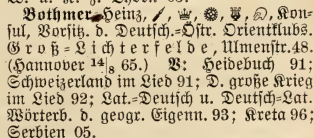 Bothmer, Heinz, Kon-
sul, Vorsitz. d. Deutsch.-Östr. Orientklubs.
Groß-Lichterfelde, Ulmenstr. 48.
(Hannover 14/8 65.) V: Heidebuch 91;
Schweizerland im Lied 91; D. große Krieg
im Lied 92; Lat.-Deutsch u. Deutsch-Lat.
Wörterb. d. geogr. Eigenn. 93; Kreta 96;
Serbien 05.